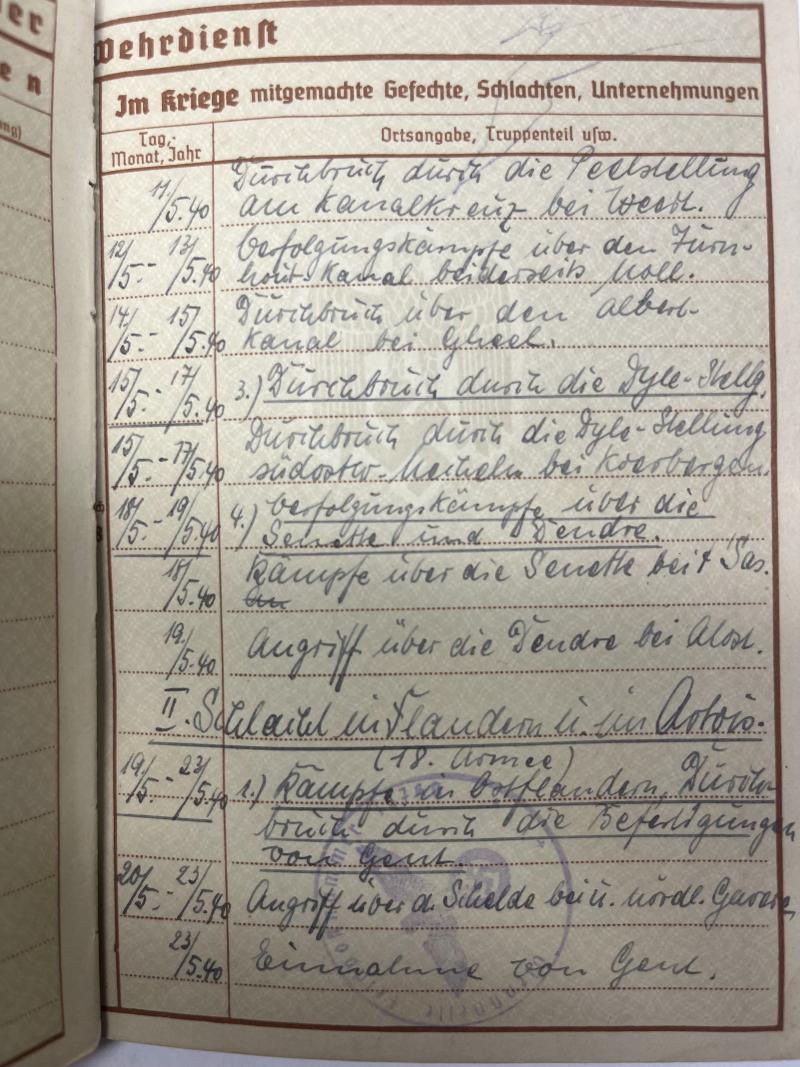 Wehrdienst
Im Kriege mitgemachte Gefechte, Schlachten, Unternehmungen
Tag, Monat, Jahr
Ortsangabe, Truppenteil usw.
11/5.40 Durchbruch durch die Peelstellung
am Kanalkreuz bei Weert.
12/5.- 13/5.40 Verfolgungskämpfe über den Turn-
hout-Kanal beiderseits Moll.
14/5.- 15/5.40 Durchbruch über den Albert-
kanal bei Gheel.
15/5.- 17/5.40 3.) Durchbruch durch die Dyle-Stellg.
15/5.- 17/5.40 Durchbruch durch die Dyle-Stellung
südostw. Mecheln bei Keerbergen.
18/5.- 19/5.40 4.) Verfolgungskämpfe über die
Senette und Dendre.
18/5.40 Kämpfe über die Senette bei Sas.
19/5.40 Angriff über die Dendre bei Alost.
II. Schlacht in Flandern u. im Artois.
(18. Armee)
19/5.- 23/5.40 1.) Kämpfe in Ostflandern, Durch-
bruch durch die Befestigungen
von Gent.
20/5.- 23/5.40 Angriff über d. Schelde bei u. nördl. Gavere
23/5.40 Einnahme von Gent.